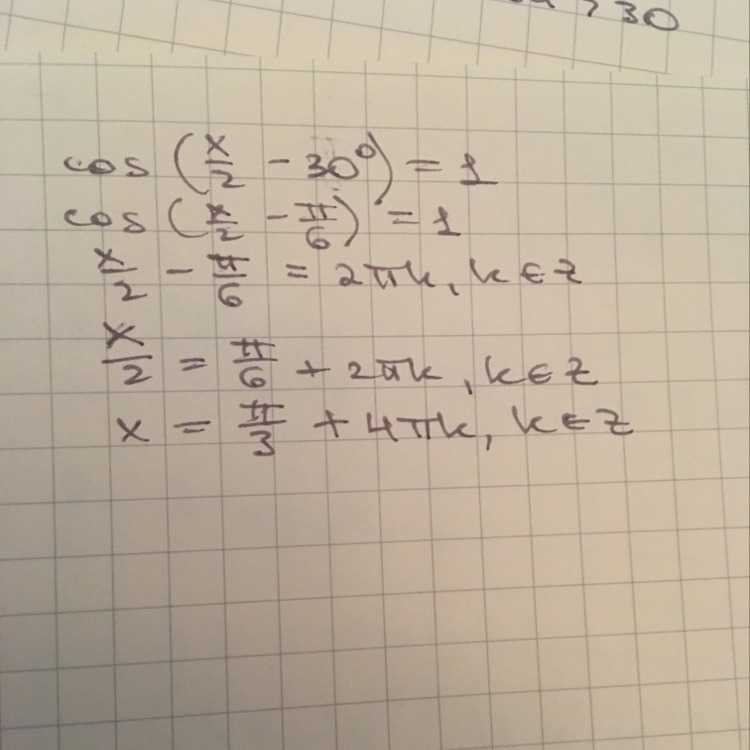 30
cos (x/2 - 30°) = 1
cos (x/2 - π/6) = 1
x/2 - π/6 = 2πk, k ∈ Z
x/2 = π/6 + 2πk, k ∈ Z
x = π/3 + 4πk, k ∈ Z